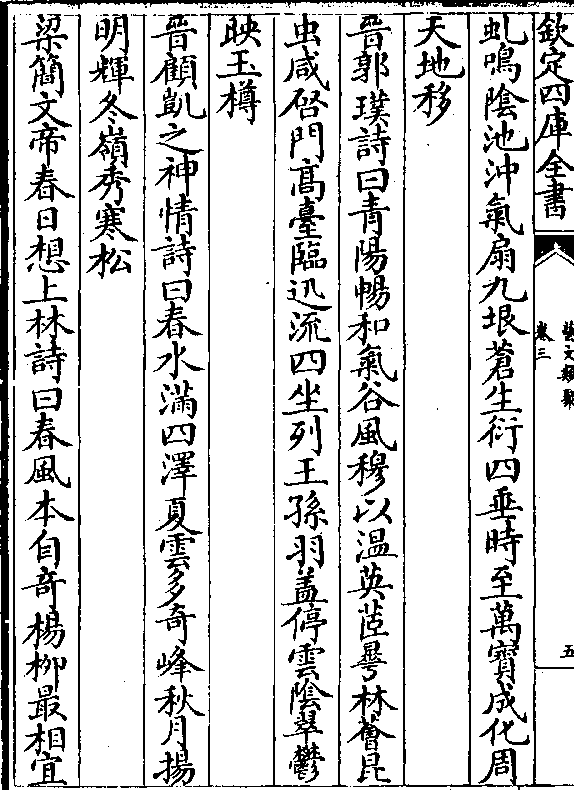 欽定四庫全書
藝文類聚
卷三
五
虬鳴陰池沖氣扇九垠蒼生衍四垂時至萬寳成化周
天地移
晉郭璞詩曰青陽暢和氣谷風穆以温英茝曅林薈昆
虫咸啓門髙臺臨迅流四坐列王孫羽盖停雲陰翠鬱
映玉樽
晉顧凱之神情詩曰春水滿四澤夏雲多奇峰秋月揚
明輝冬嶺秀寒松
梁簡文帝春日想上林詩曰春風本自奇楊栁最相宜